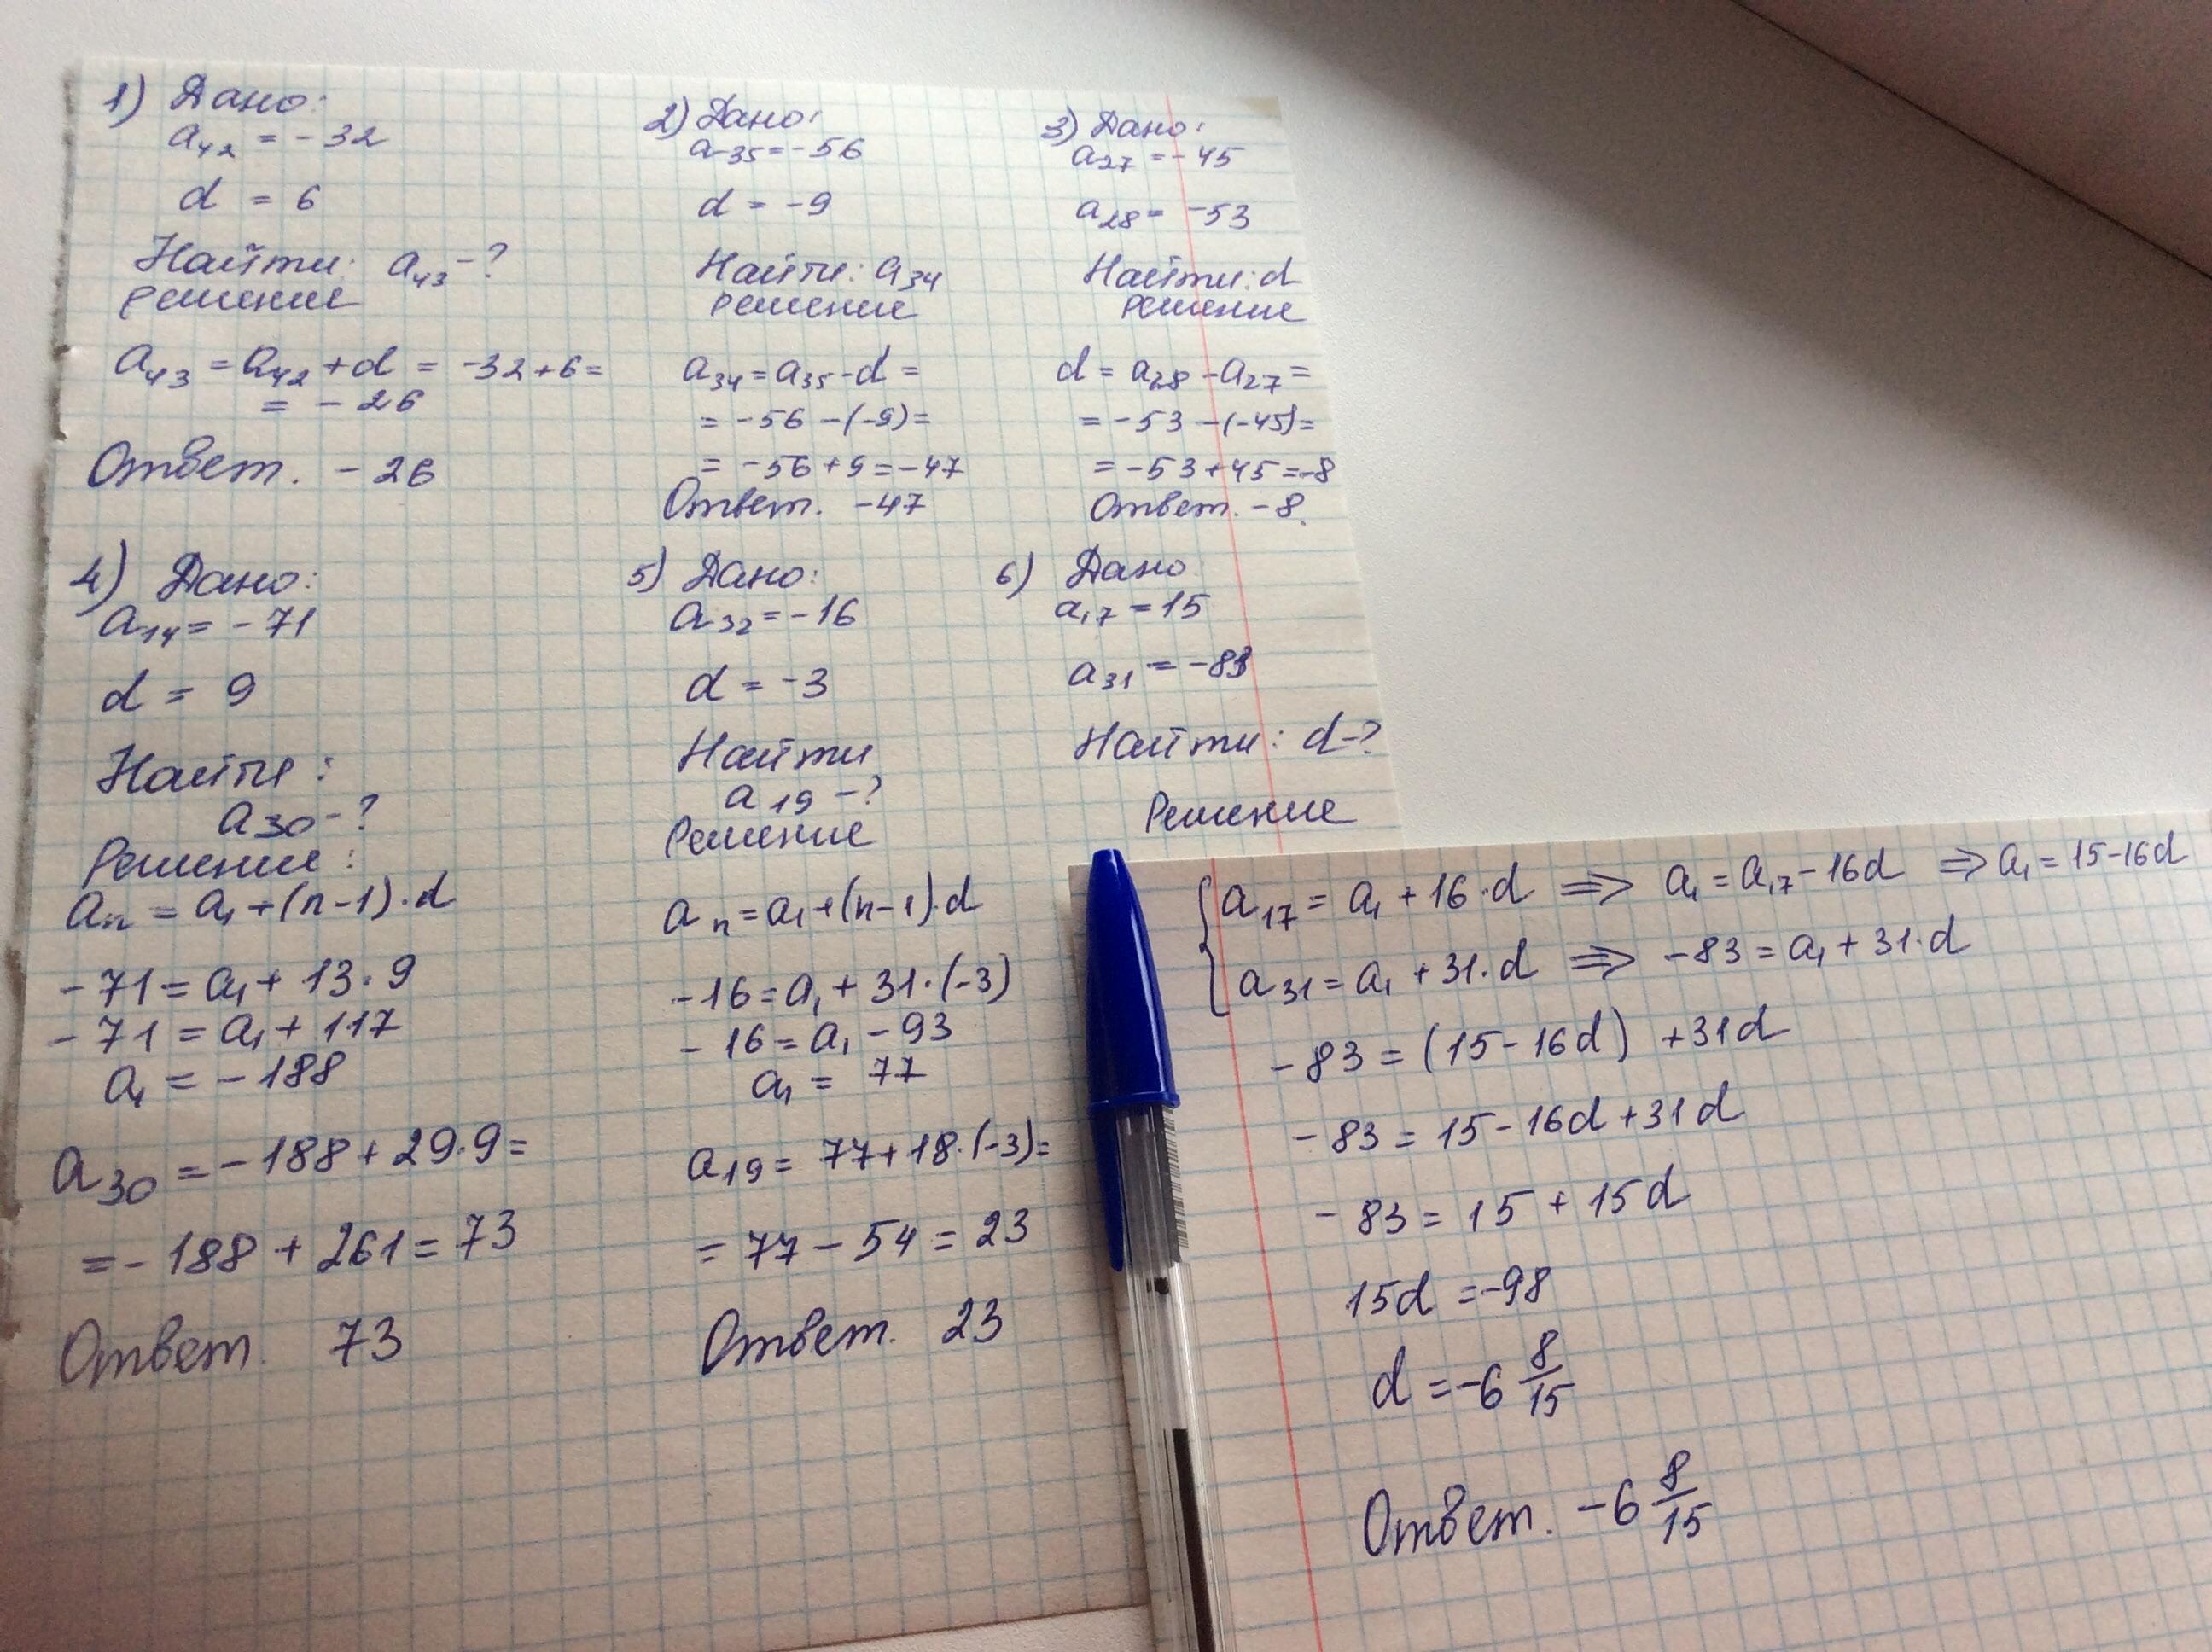 1) Дано:
a₄₂ = -32
d = 6
Найти: a₄₃ -?
Решение
a₄₃ = a₄₂ + d = -32+6=
= -26
Ответ. -26
2) Дано:
a₃₅ = -56
d = -9
Найти: a₃₄
Решение
a₃₄ = a₃₅ - d =
= -56 -(-9)=
= -56+9=-47
Ответ. -47
3) Дано:
a₂₇ = -45
a₂₈ = -53
Найти: d
Решение
d = a₂₈ - a₂₇ =
= -53 -(-45)=
= -53+45=-8
Ответ. -8.
4) Дано:
a₁₄ = -71
d = 9
Найти:
a₃₀ -?
Решение:
aₙ = a₁+(n-1)·d
-71 = a₁ + 13·9
-71 = a₁ + 117
a₁ = -188
a₃₀ = -188 + 29·9=
= -188 + 261 = 73
Ответ. 73
5) Дано:
a₃₂ = -16
d = -3
Найти
a₁₉ -?
Решение
aₙ = a₁+(n-1)·d
-16 = a₁ + 31·(-3)
-16 = a₁ - 93
a₁ = 77
a₁₉ = 77+18·(-3)=
= 77 - 54 = 23
Ответ. 23
6) Дано
a₁₇ = 15
a₃₁ = -83
Найти: d-?
Решение
{a₁₇ = a₁ + 16·d ⇒ a₁ = a₁₇ - 16d ⇒ a₁ = 15-16d
a₃₁ = a₁ + 31·d ⇒ -83 = a₁ + 31·d
-83 = (15-16d) +31d
-83 = 15-16d+31d
-83 = 15 + 15d
15d = -98
d = -6 8/15
Ответ. -6 8/15